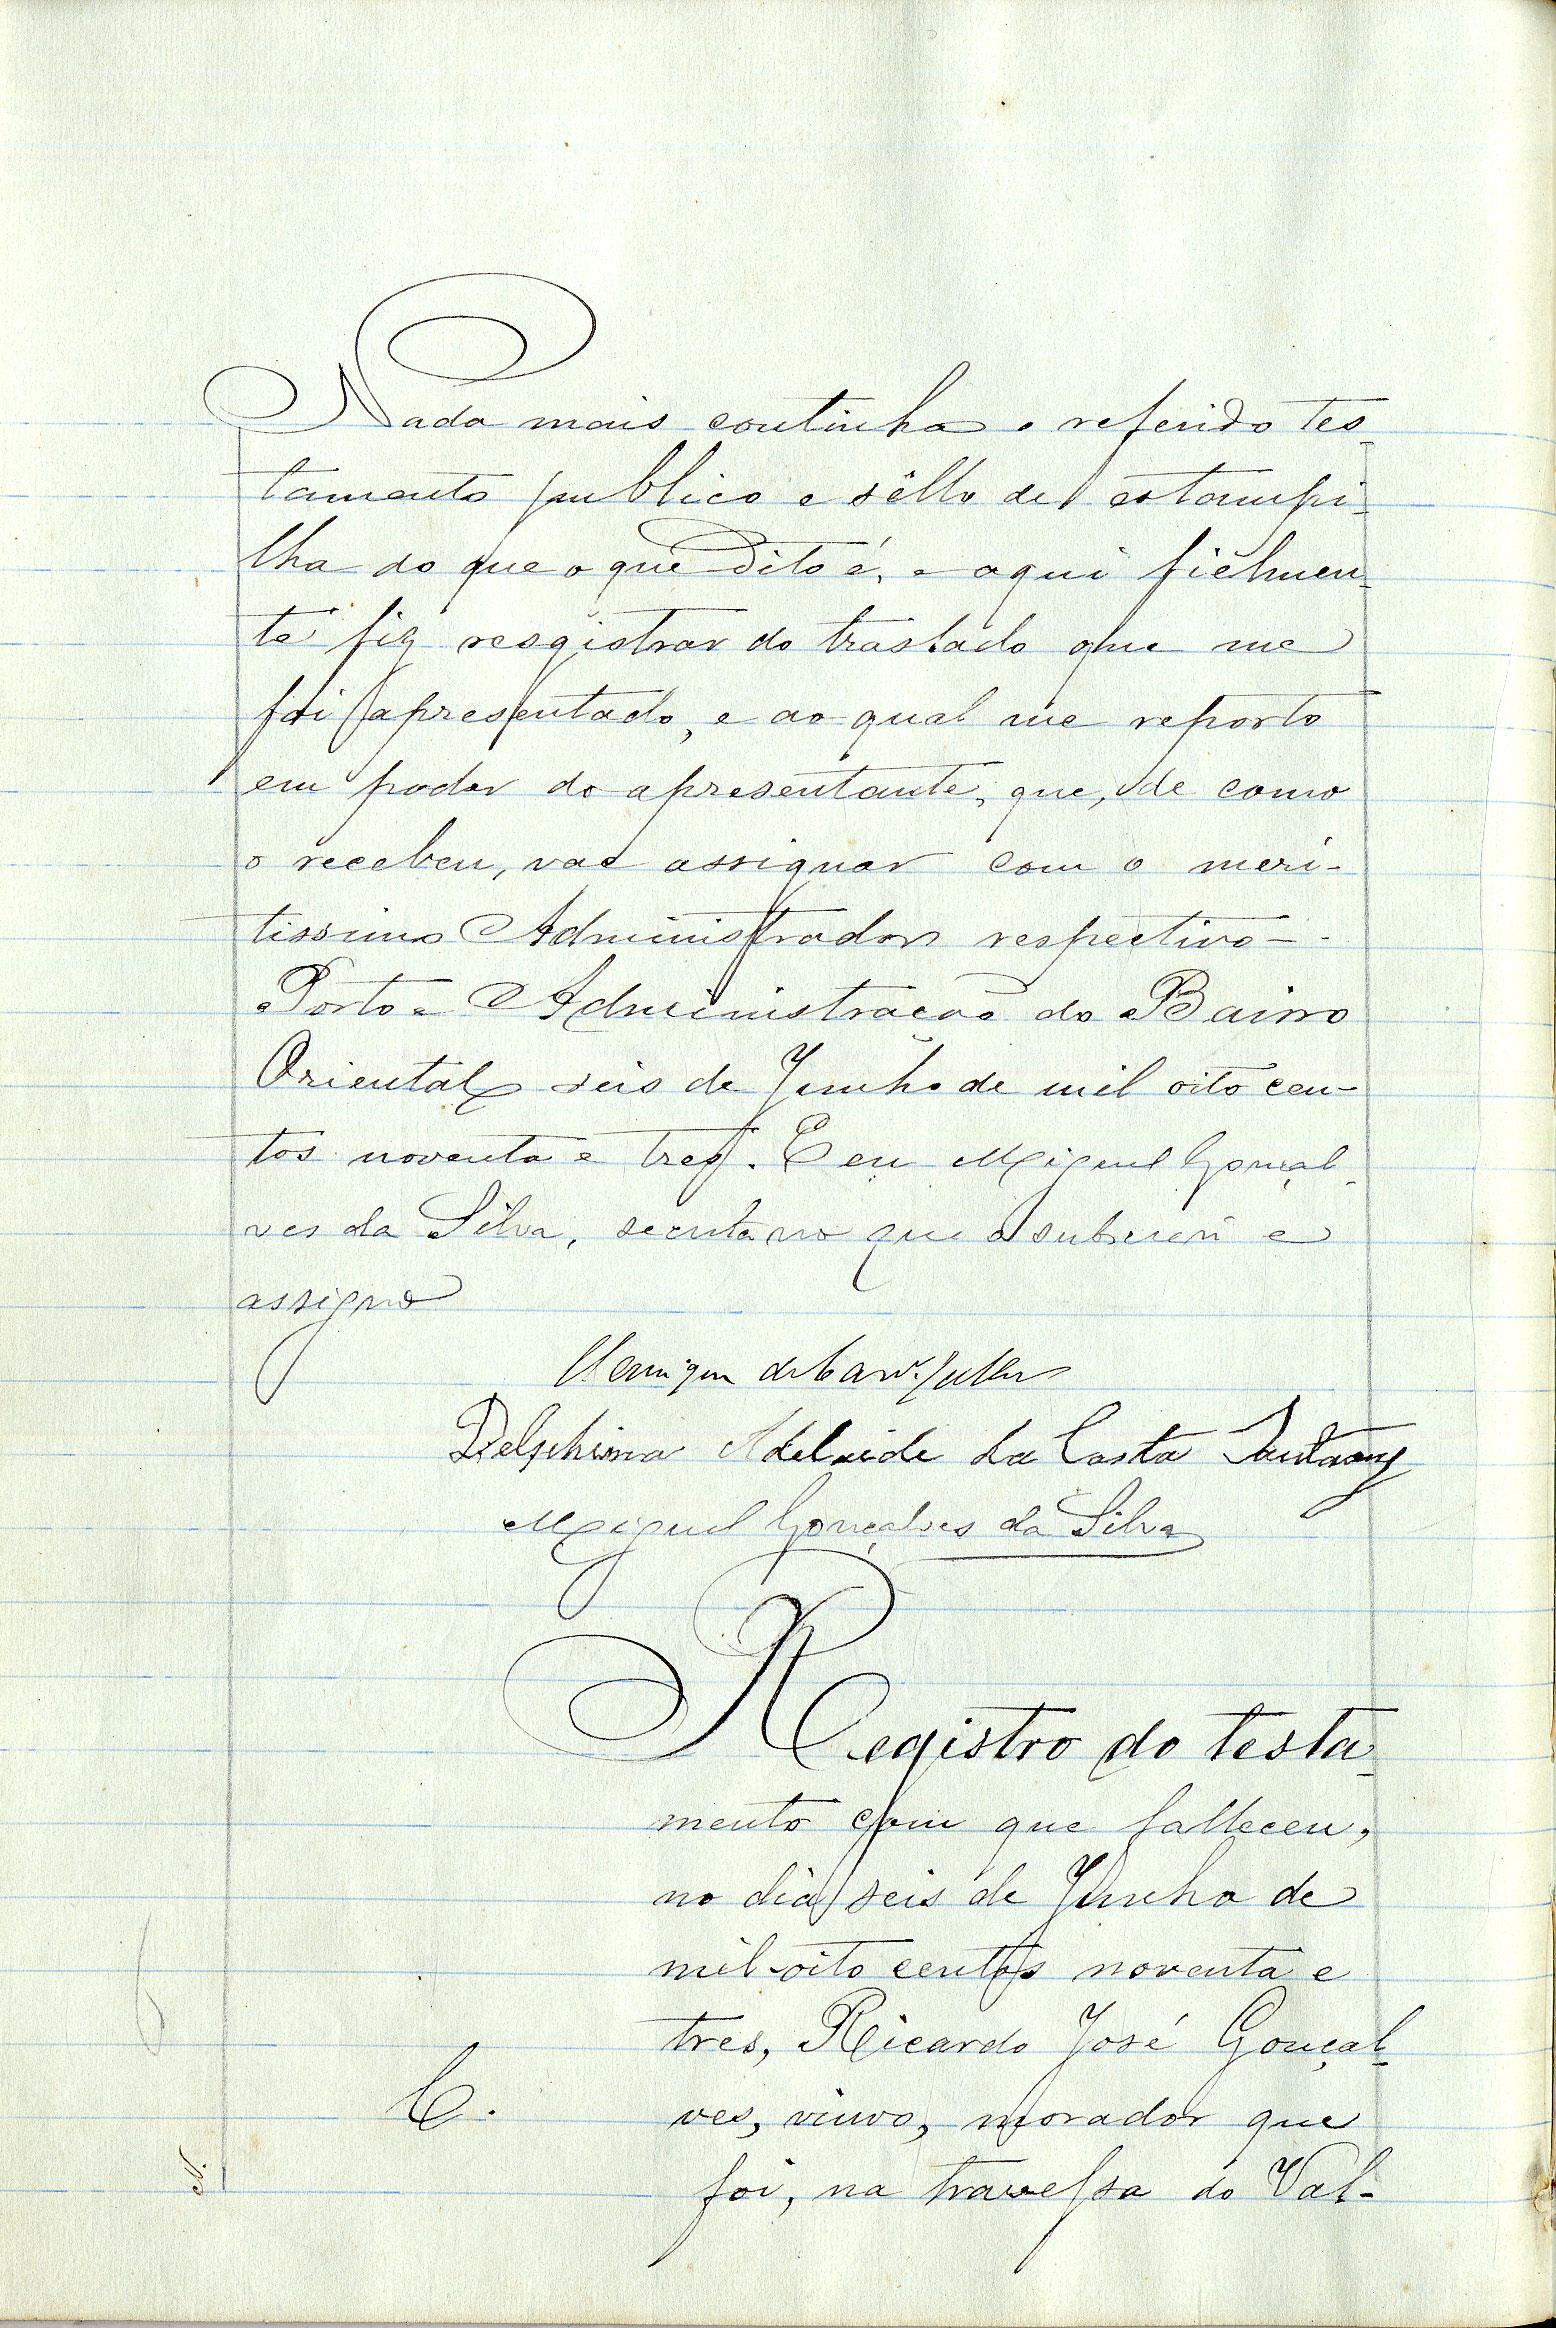 Nada mais continha o referido tes-
tamento publico e sêllo de estampi-
lha do que o que dito é, e aqui fiélmen-
te fiz resgistrar do traslado que me
foi apresentado, e ao qual me reporto
em poder do apresentante, que, de como
o recebeu, vae assignar com o meri-
tissimo Administrador respectivo -
Porto e Administração do Bairro
Oriental seis de Junho de mil oito cen-
tos noventa e tres. E eu Miguel Gonçal-
ves da Silva, secretario que o subscrevi e
assigno
Delphina Adelaide da Costa
Miguel Gonçalves da Silva
Registro do testa-
mento com que falleceu,
no dia seis de Junho de
mil oito centos noventa e
tres, Ricardo José Gonçal-
ves, viuvo, morador que
C.
foi, na travessa do Val-